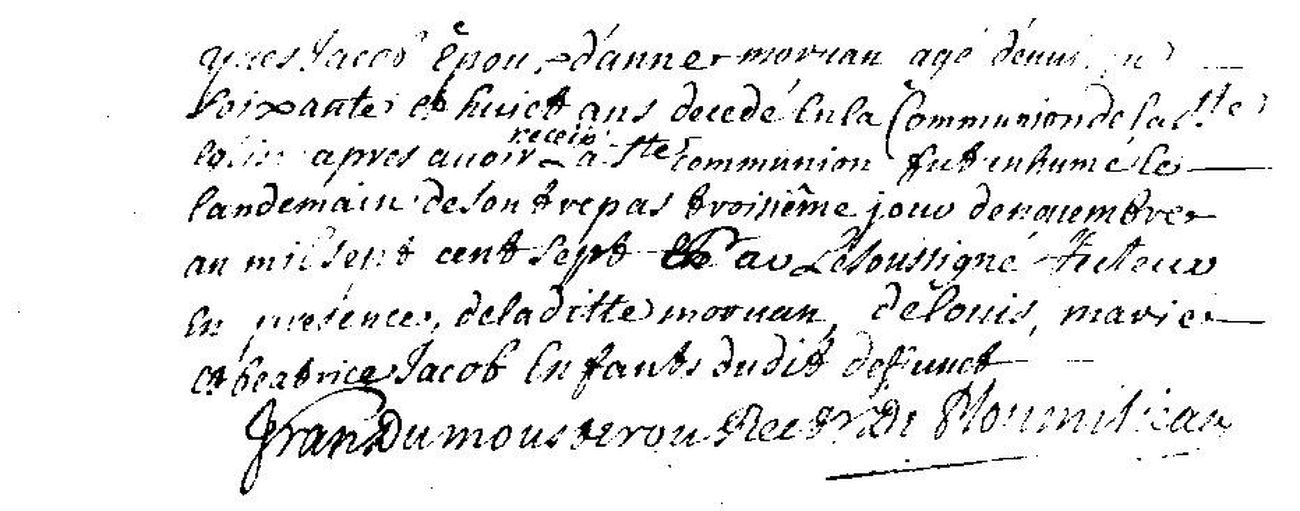 yves Jacob Epou d'anne morvan agé d'envi
soixante et huict ans decedé En la Communion de la Ste
Eglise apres avoir receu la Ste Communion fut inhumé le
landemain de son trepas troisiême jour de nouembre
an mil sept cent sept par Le soussigné Recteur
En presence, de la ditte moruan, de louis, marie
et beatrice Jacob Enfants dudit deffunct
fran Dumousterou Rectr De Ploumiliau